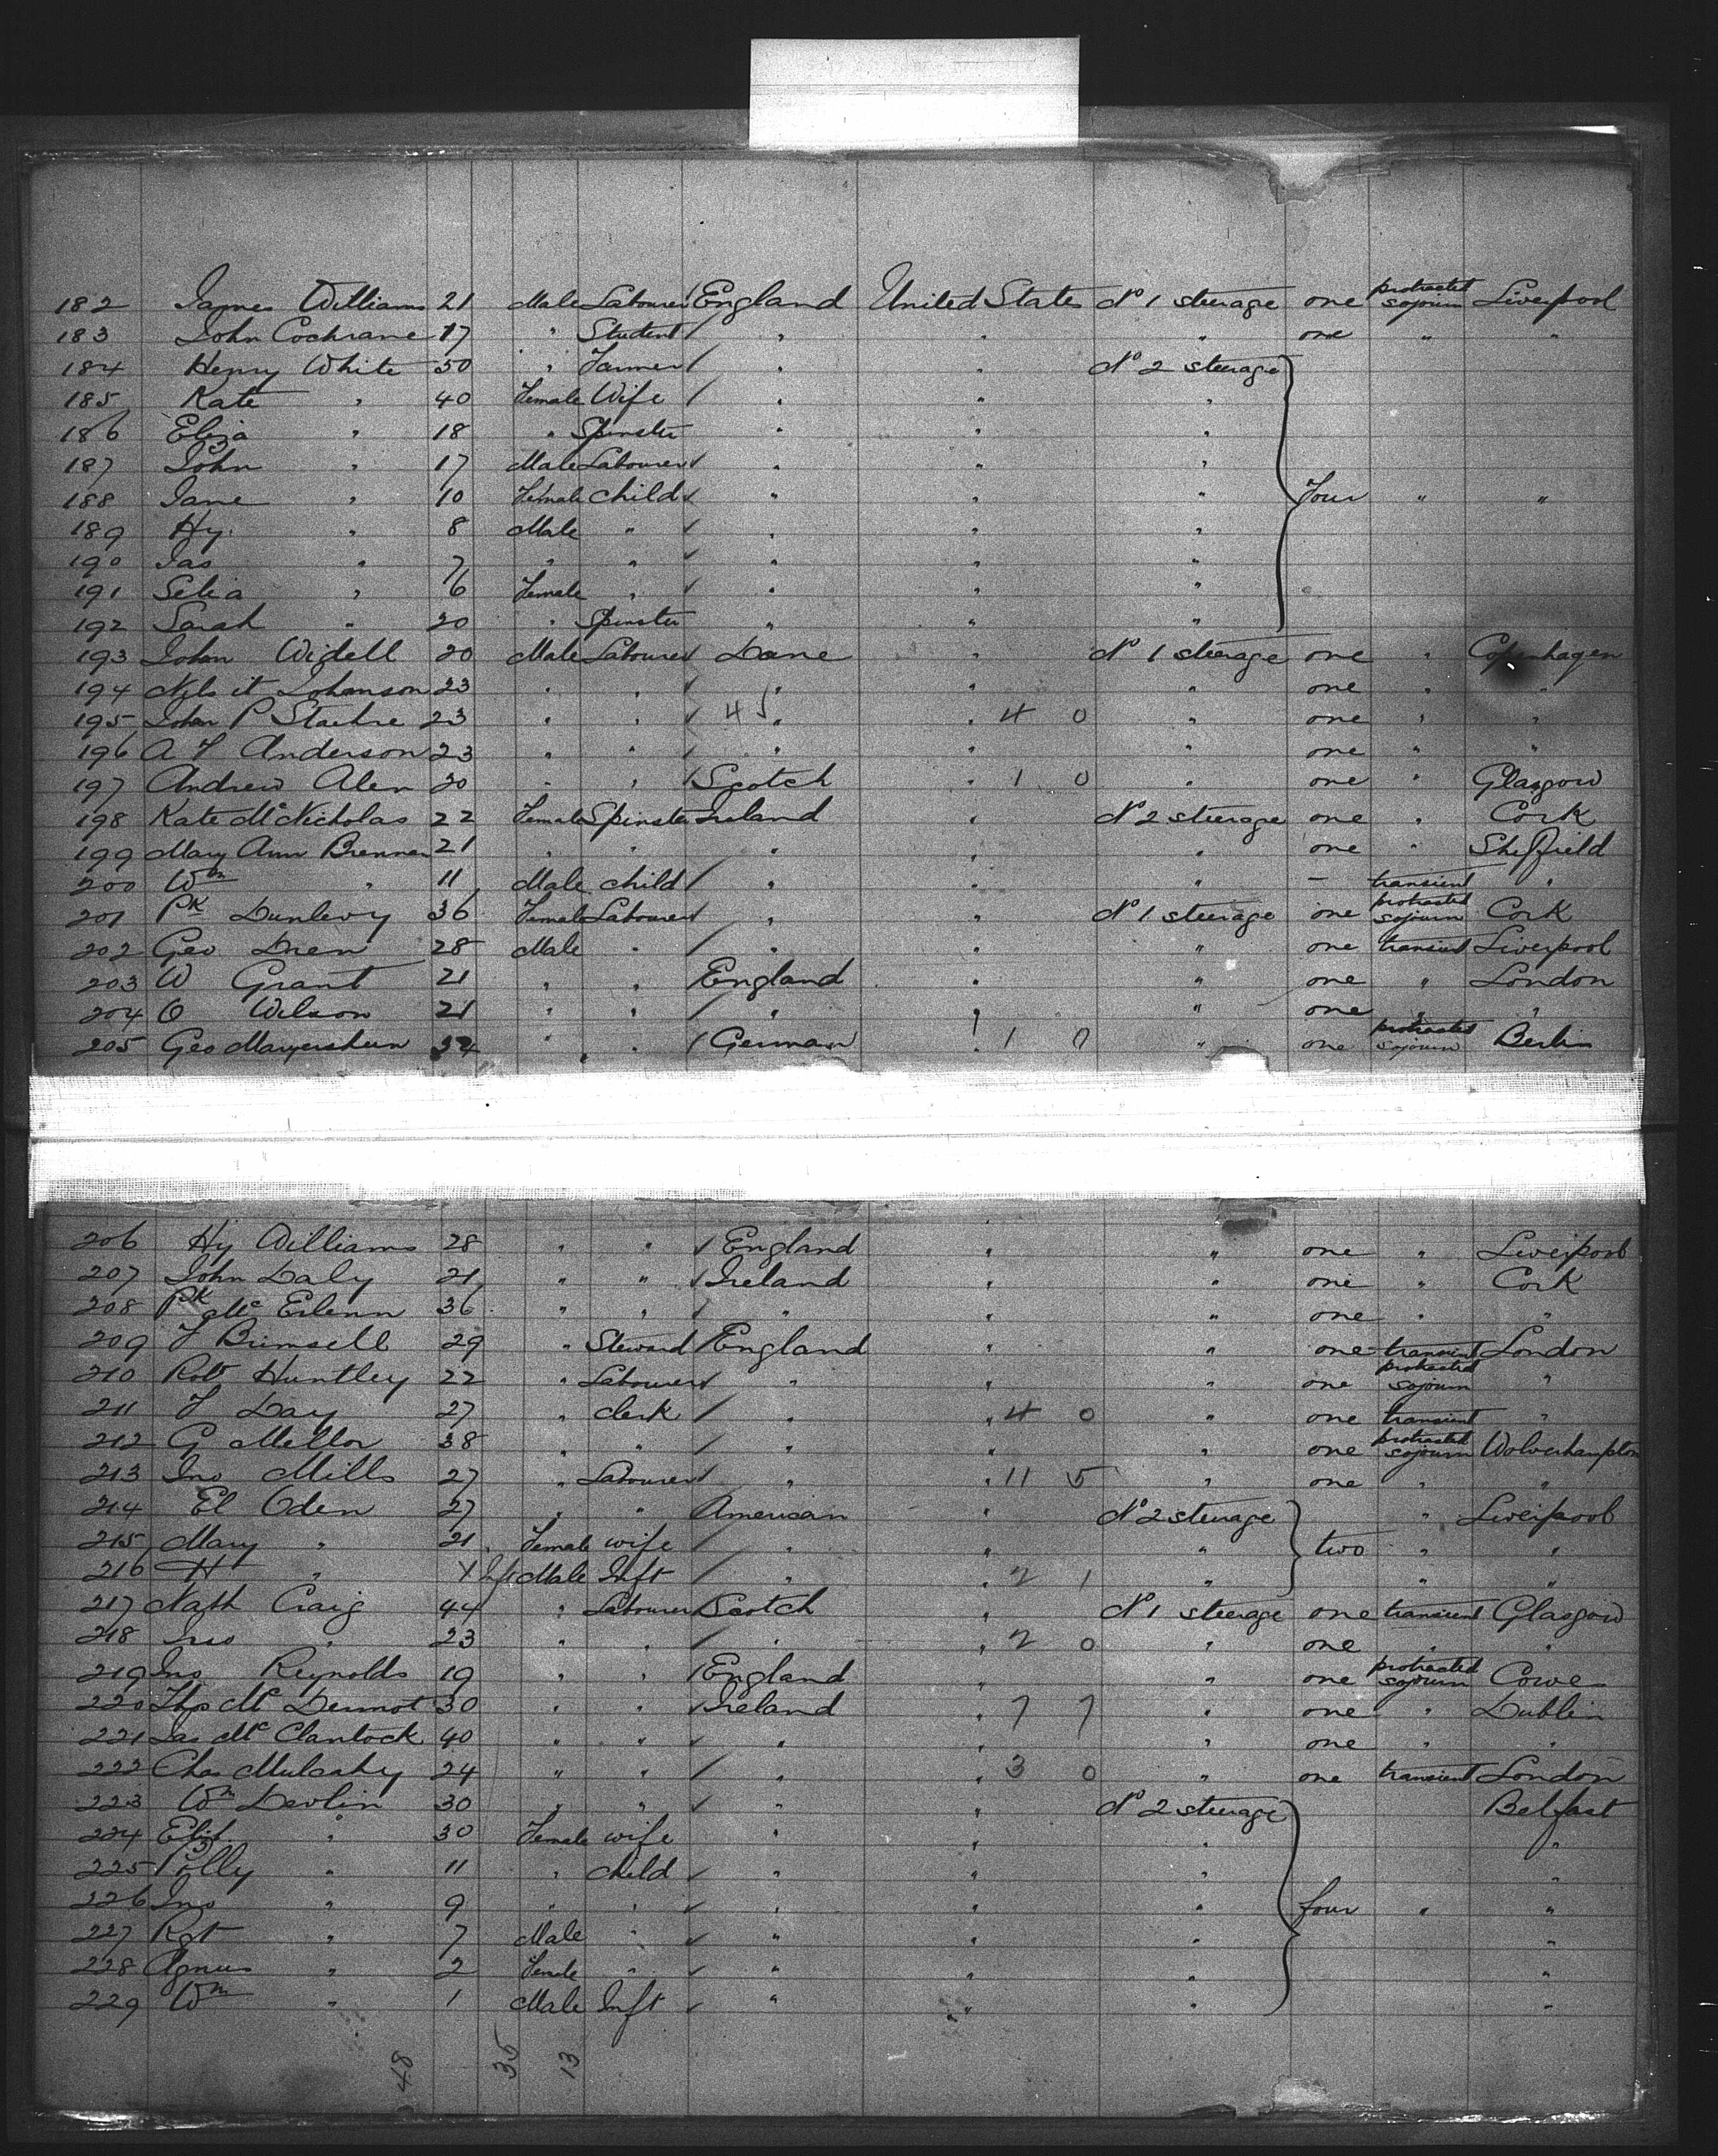 182 James Williams 21 Male Labourer England United States No 1 steerage one protracted sojourn Liverpool
183 John Cochrane 17 " Student / " " " one " "
184 Henry White 50 " Farmer / " " No 2 steerage
185 Kate " 40 Female Wife / " " "
186 Eliza " 18 " Spinster " " "
187 John " 17 Male Labourer " " "
188 Jane " 10 Female child " " " Four " "
189 Hy. " 8 Male " " " "
190 Jas " 7 " " " " "
191 Selia " 6 Female " " " "
192 Sarah " 20 " Spinster " " "
193 John Widell 20 Male Labourer Dane " No 1 steerage one " Copenhagen
194 Nils it Johanson 23 " " " " " one " "
195 John P Staehre 23 " " 45 " " 4 0 " one " "
196 A F Anderson 23 " " " " " one " "
197 Andrew Alen 20 " " Scotch " 1 0 " one " Glasgow
198 Kate McNicholas 22 Female Spinster Ireland " No 2 steerage one " Cork
199 Mary Ann Brennan 21 " " " " " one " Sheffield
200 Wm " 11 Male child / " " " – transient "
201 Pk Dunlevy 36 Female Labourer " " No 1 steerage one protracted sojourn Cork
202 Geo Dren 28 Male " / " " " one transient Liverpool
203 W Grant 21 " " England " " one " London
204 O Wilson 21 " " / " " " one " "
205 Geo 34 " " German " 1 0 " one protracted sojourn Berlin
206 Hy Williams 28 " " England " " one " Liverpool
207 John Daly 21 " " Ireland " " one " Cork
208 Pk Mc Erlenn 36 " " " " " one " "
209 J Brimsell 29 " Steward England " " one transient London
210 Robt Huntley 22 " Labourer " " " one protracted sojourn "
211 J Day 27 " clerk / " " 4 0 " one transient "
212 G Mellor 38 " " / " " " one protracted sojourn Wolverhampton
213 Jno Mills 27 " Labourer " " 11 5 " one " "
214 El Oden 27 " " American " No 2 steerage " Liverpool
215 Mary " 21 Female wife / " " " two " "
216 H " Inft Male Inft / " " 2 1 " " "
217 Nath Craig 44 " Labourer Scotch " No 1 steerage one transient Glasgow
218 Jno " 23 " " / " " 2 0 " one " "
219 Jno Reynolds 19 " " England " " one protracted sojourn Cowes
220 Thos Mc Dermot 30 " " Ireland " 7 7 " one " Dublin
221 Jas Mc Clantock 40 " " " " " one " "
222 Chas Mulcahy 24 " " / " " 3 0 " one transient London
223 Wm Devlin 30 " " " " No 2 steerage Belfast
224 Eliz. " 30 Female wife " " " "
225 Polly " 11 " child " " " "
226 Jno " 9 " " " " " four " "
227 Rgt " 7 Male " " " " "
228 Agnus " 2 Female " " " " "
229 Wm " 1 Male Inft " " " "
48 35 13